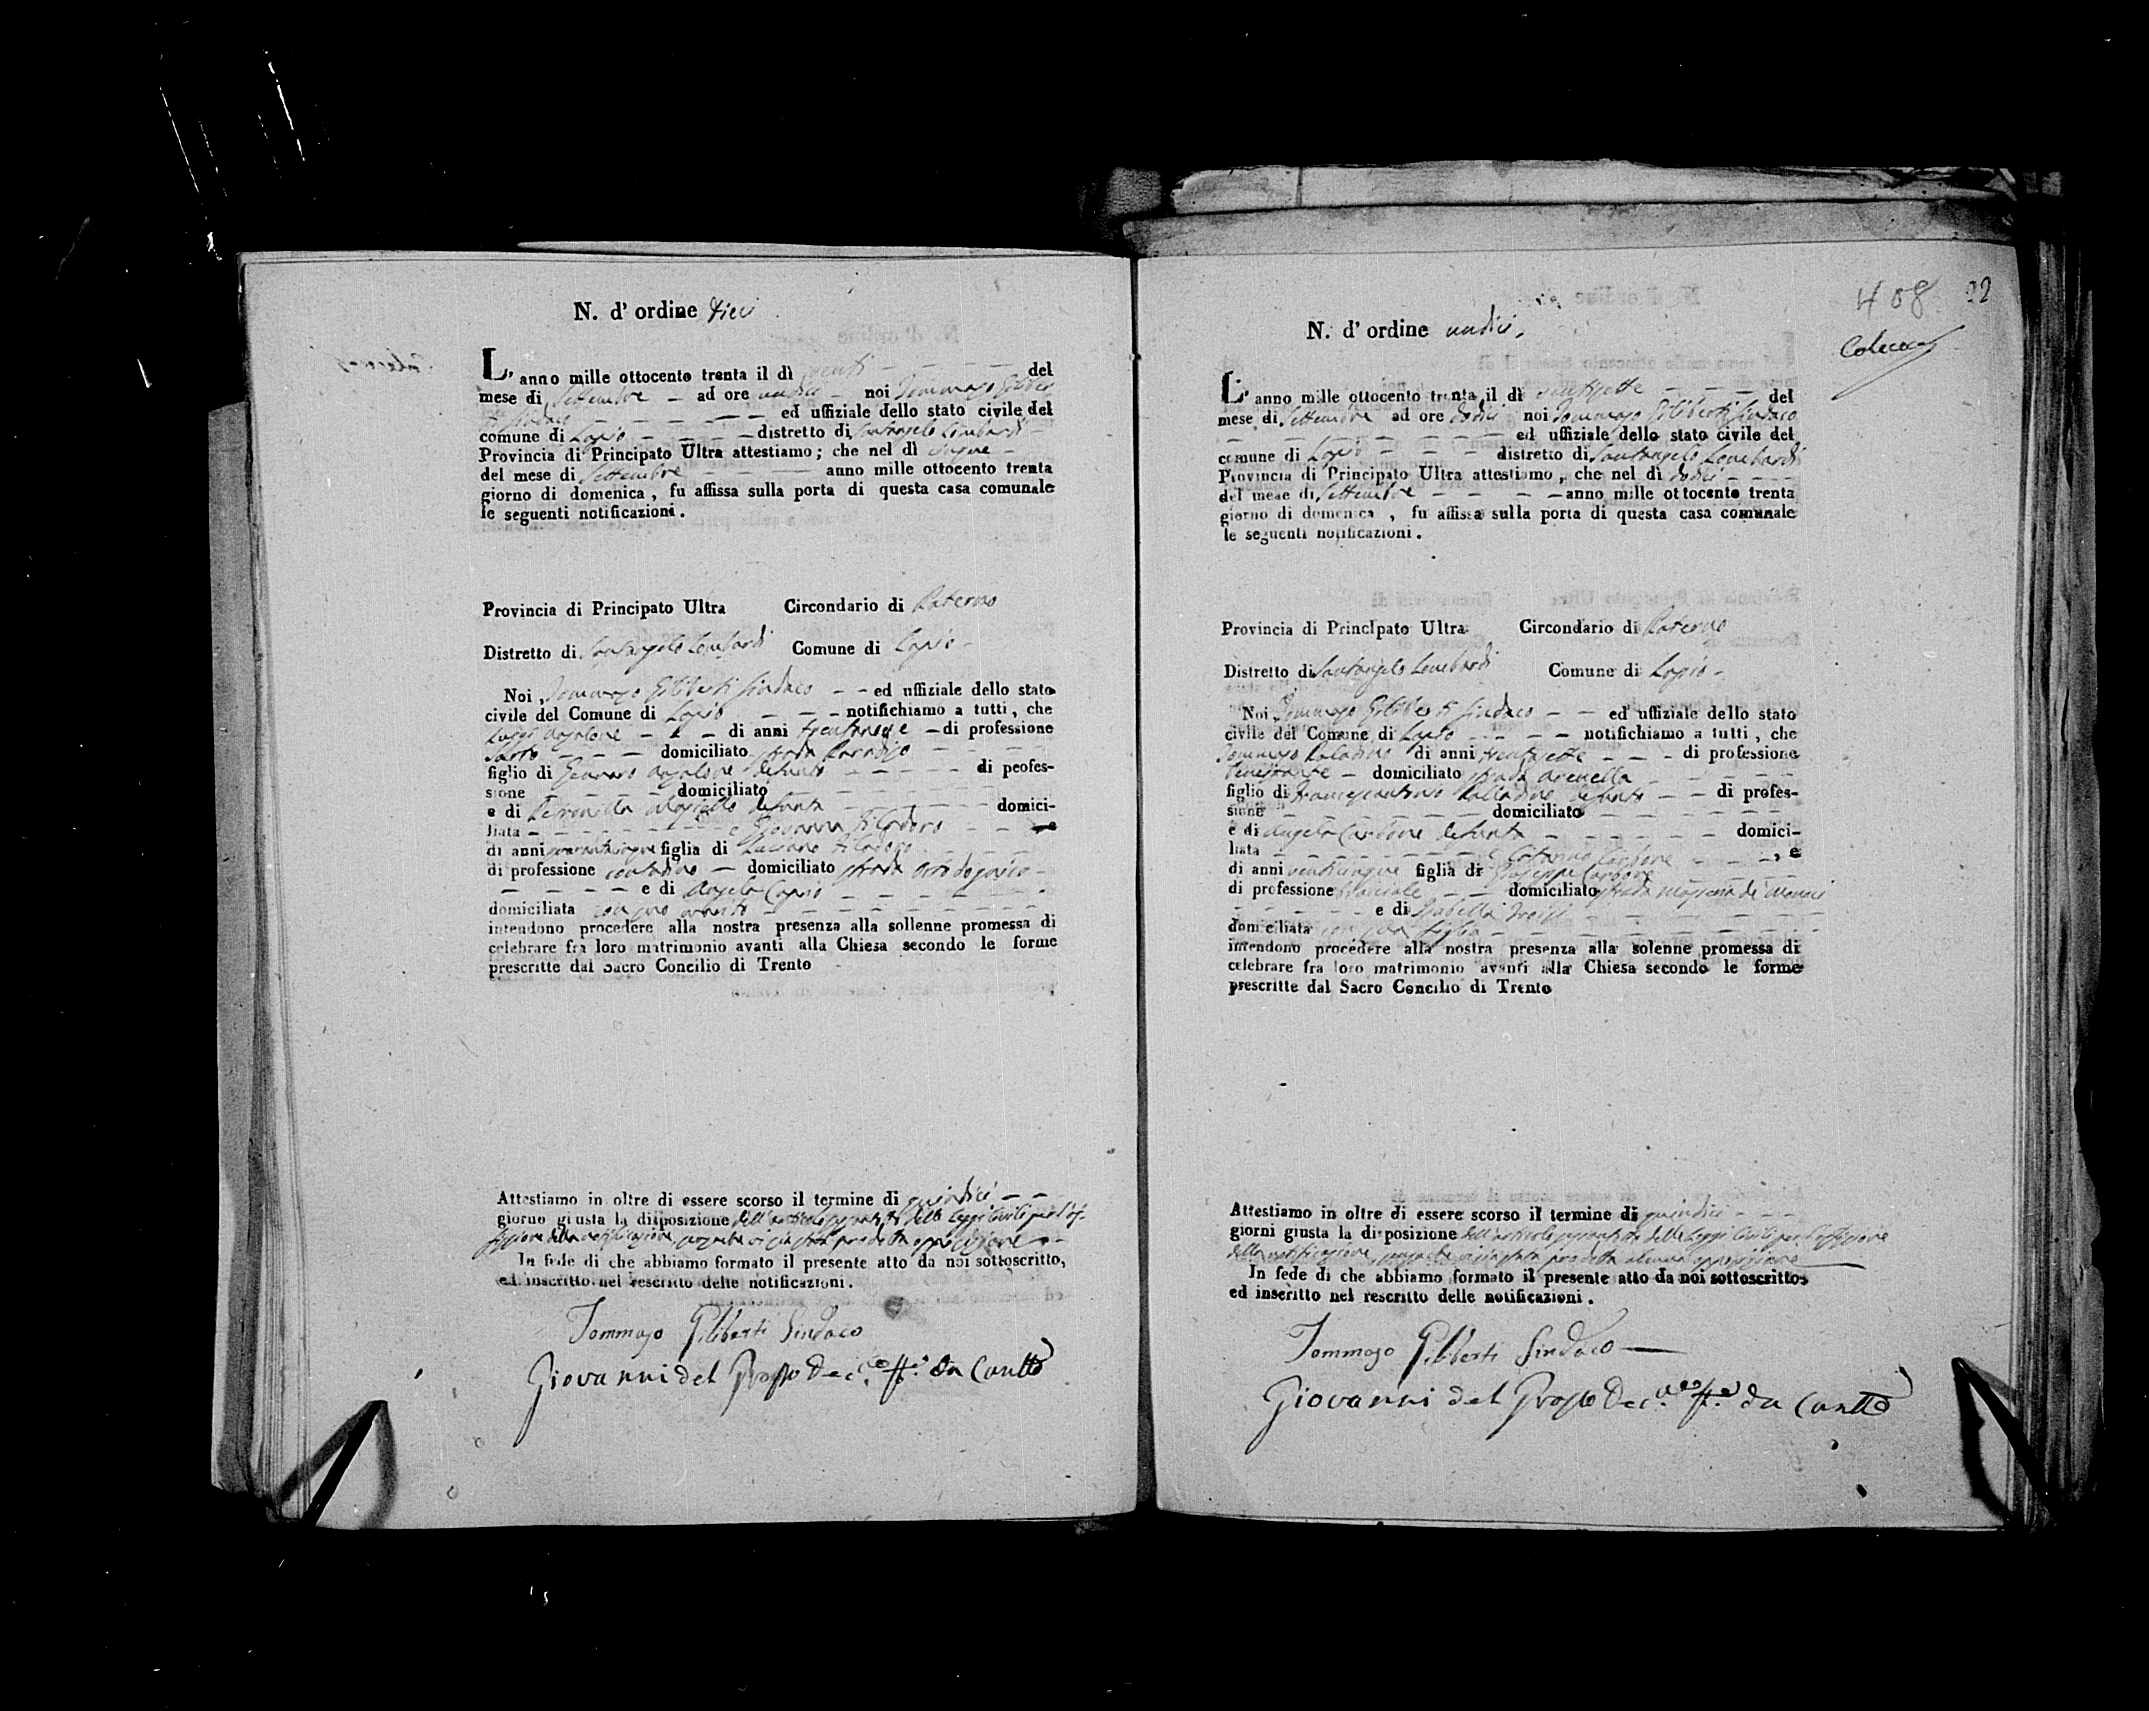 N. d' ordine dieci
L' anno mille ottocento trenta il dì venti del
mese di Settembre ad ore undici noi Tommaso Giliber
ti Sindaco ed uffiziale dello stato civile del
comune di Lapio distretto di Santangelo Lombardi
Provincia di Principato Ultra attestiamo; che nel dì cinque
del mese di Settembre anno mille ottocento trenta
giorno di domenica, fu affissa sulla porta di questa casa comunale
le seguenti notificazioni.
Provincia di Principato Ultra Circondario di Paterno
Distretto di Santangelo Lombardi Comune di Lapio
Noi Tommaso Giliberti Sindaco ed uffiziale dello stato
civile del Comune di Lapio notifichiamo a tutti, che
di anni di professione
Sarto domiciliato strada Paradiso
figlio di Gennaro defunto di peofes-
sione domiciliato
e di Petronilla defunta domici-
liata e Giovanna e
di anni figlia di Luciano
di professione contadino domiciliato strada
e di Angela
domiciliata con suo marito
intendono procedere alla nostra presenza alla sollenne promessa di
celebrare fra loro matrimonio avanti alla Chiesa secondo le forme
prescritte dal Sacro Concilio di Trento
Attestiamo in oltre di essere scorso il termine di quindici
giorno giusta la disposizione dell'articolo delle Leggi Civili per l'af-
fissione della notificazione,
In fede di che abbiamo formato il presente atto da noi sottoscritto,
ed inscritto nel rescritto delle notificazioni.
Tommaso Giliberti Sindaco
Giovanni del
408 22
N. d' ordine undici,
L' anno mille ottocento trenta, il dì ventisette del
mese di Settembre ad ore dodici noi Tommaso Giliberti Sindaco
ed uffiziale dello stato civile del
comune di Lapio distretto di Santangelo Lombardi
Provincia di Principato Ultra attestiamo, che nel dì dodici
del mese di Settembre anno mille ottocento trenta
giorno di domenica, fu affissa sulla porta di questa casa comunale
le seguenti notificazioni.
Provincia di Principato Ultra Circondario di Paterno
Distretto di Santangelo Lombardi Comune di Lapio
Noi Tommaso Giliberti Sindaco ed uffiziale dello stato
civile del Comune di Lapio notifichiamo a tutti, che
Tommaso Palladino di anni trentasette di professione
domiciliato strada Arenella
figlio di Francescantonio Palladino defunto di profes-
sione domiciliato
e di Angela Carbone defunta domici-
liata e Caterina Carbone, e
di anni venticinque figlia di Giuseppe Carbone
di professione domiciliato strada
e di Isabella
domiciliata con sua figlia
intendono procedere alla nostra presenza alla solenne promessa di
celebrare fra loro matrimonio avanti alla Chiesa secondo le forme
prescritte dal Sacro Concilio di Trento
Attestiamo in oltre di essere scorso il termine di quindici
giorni giusta la disposizione dell'articolo delle Leggi Civili per l'affissione
della notificazione, prodotta alcuna opposizione
In fede di che abbiamo formato il presente atto da noi sottoscritto,
ed inscritto nel rescritto delle notificazioni.
Tommaso Giliberti Sindaco
Giovanni del